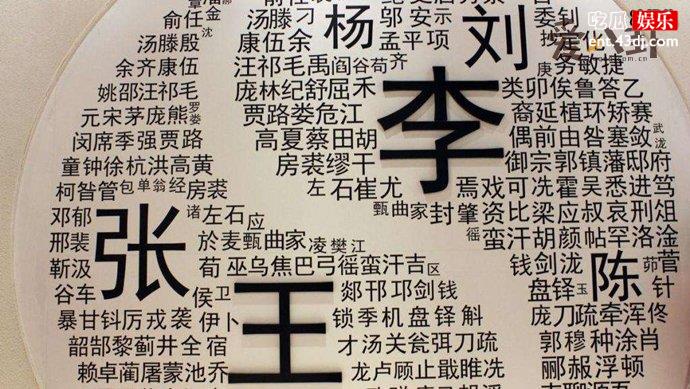 吃瓜娱乐
ent.43dj.com
杨
刘
李
张
王
陈
俞任金
沈
汤滕殷
余齐康伍
姚邵汪毛
元宋茅庞熊
罗娄
闵席季强贾路
童钟徐杭洪高黄
柯昝管包单翁经房裘
汤滕刁
邬安示
康伍余
孟平项
汪祁毛禹阎谷荀齐
庞林纪舒屈禾
贾路娄危江
高夏蔡田胡
房裘缪干
左石崔尤
甄曲家封肇
庚劳敏捷
类卯俟鲁答乙
裔延植环矫赛
偶前由昝塞敛
武泷
御宗郭镇藩邸府
焉戏可冼霍吴悉进笃
资比梁应叔哀刑俎
徭蛮汗胡颜帖罕洛淦
钱剑泷
茆菅
盘铎玉
针
庞刀疏牵浑佟
郭穆种涂肖
郦郝浮顿
邓郁
诸左石应
邢裴
於麦甄曲家凌樊江
靳汲
荀巫乌焦巴弓徭蛮汗吉区
谷车
侯卫
郯邗邛剑钱
暴甘钭厉戎袭伊卜
锁季机盘铎斛
韶郜黎蓟井全宿
才汤关瓮弭刀疏
赖卓蔺屠蒙池乔
龙卢顾止戢睢冼